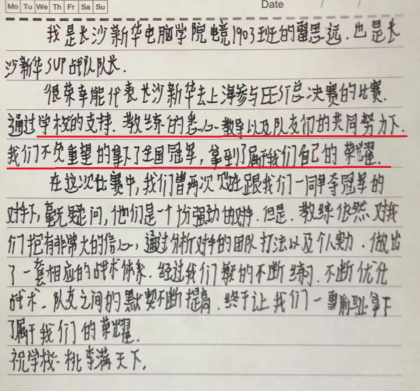 Mo Tu We Th Fr Sa Su Date
我是长沙新华电脑学院电竞1903班的雷思远.也是长
沙新华SUP战队队长.
很荣幸能代表长沙新华去上海参与EST总决赛的比赛.
通过学校的支持.教练的悉心教导以及队友们的共同努力下.
我们不负重望的拿下了全国冠军,拿到了属于我们自己的荣耀.
在这次比赛中,我们曾两次 跟我们一同争夺冠军的
对手,毫无疑问,他们是一个十分强劲的对手.但是.教练依然对我
们抱有非常大的信心,通过分析对手的团队打法以及个人 ,做出
了一套相应的战术体系.经过我们 的不断练习.不断优化
战术.队友之间的默契不断提高.终于让我们一 拿下
了属于我们的荣耀.
祝学校桃李满天下.